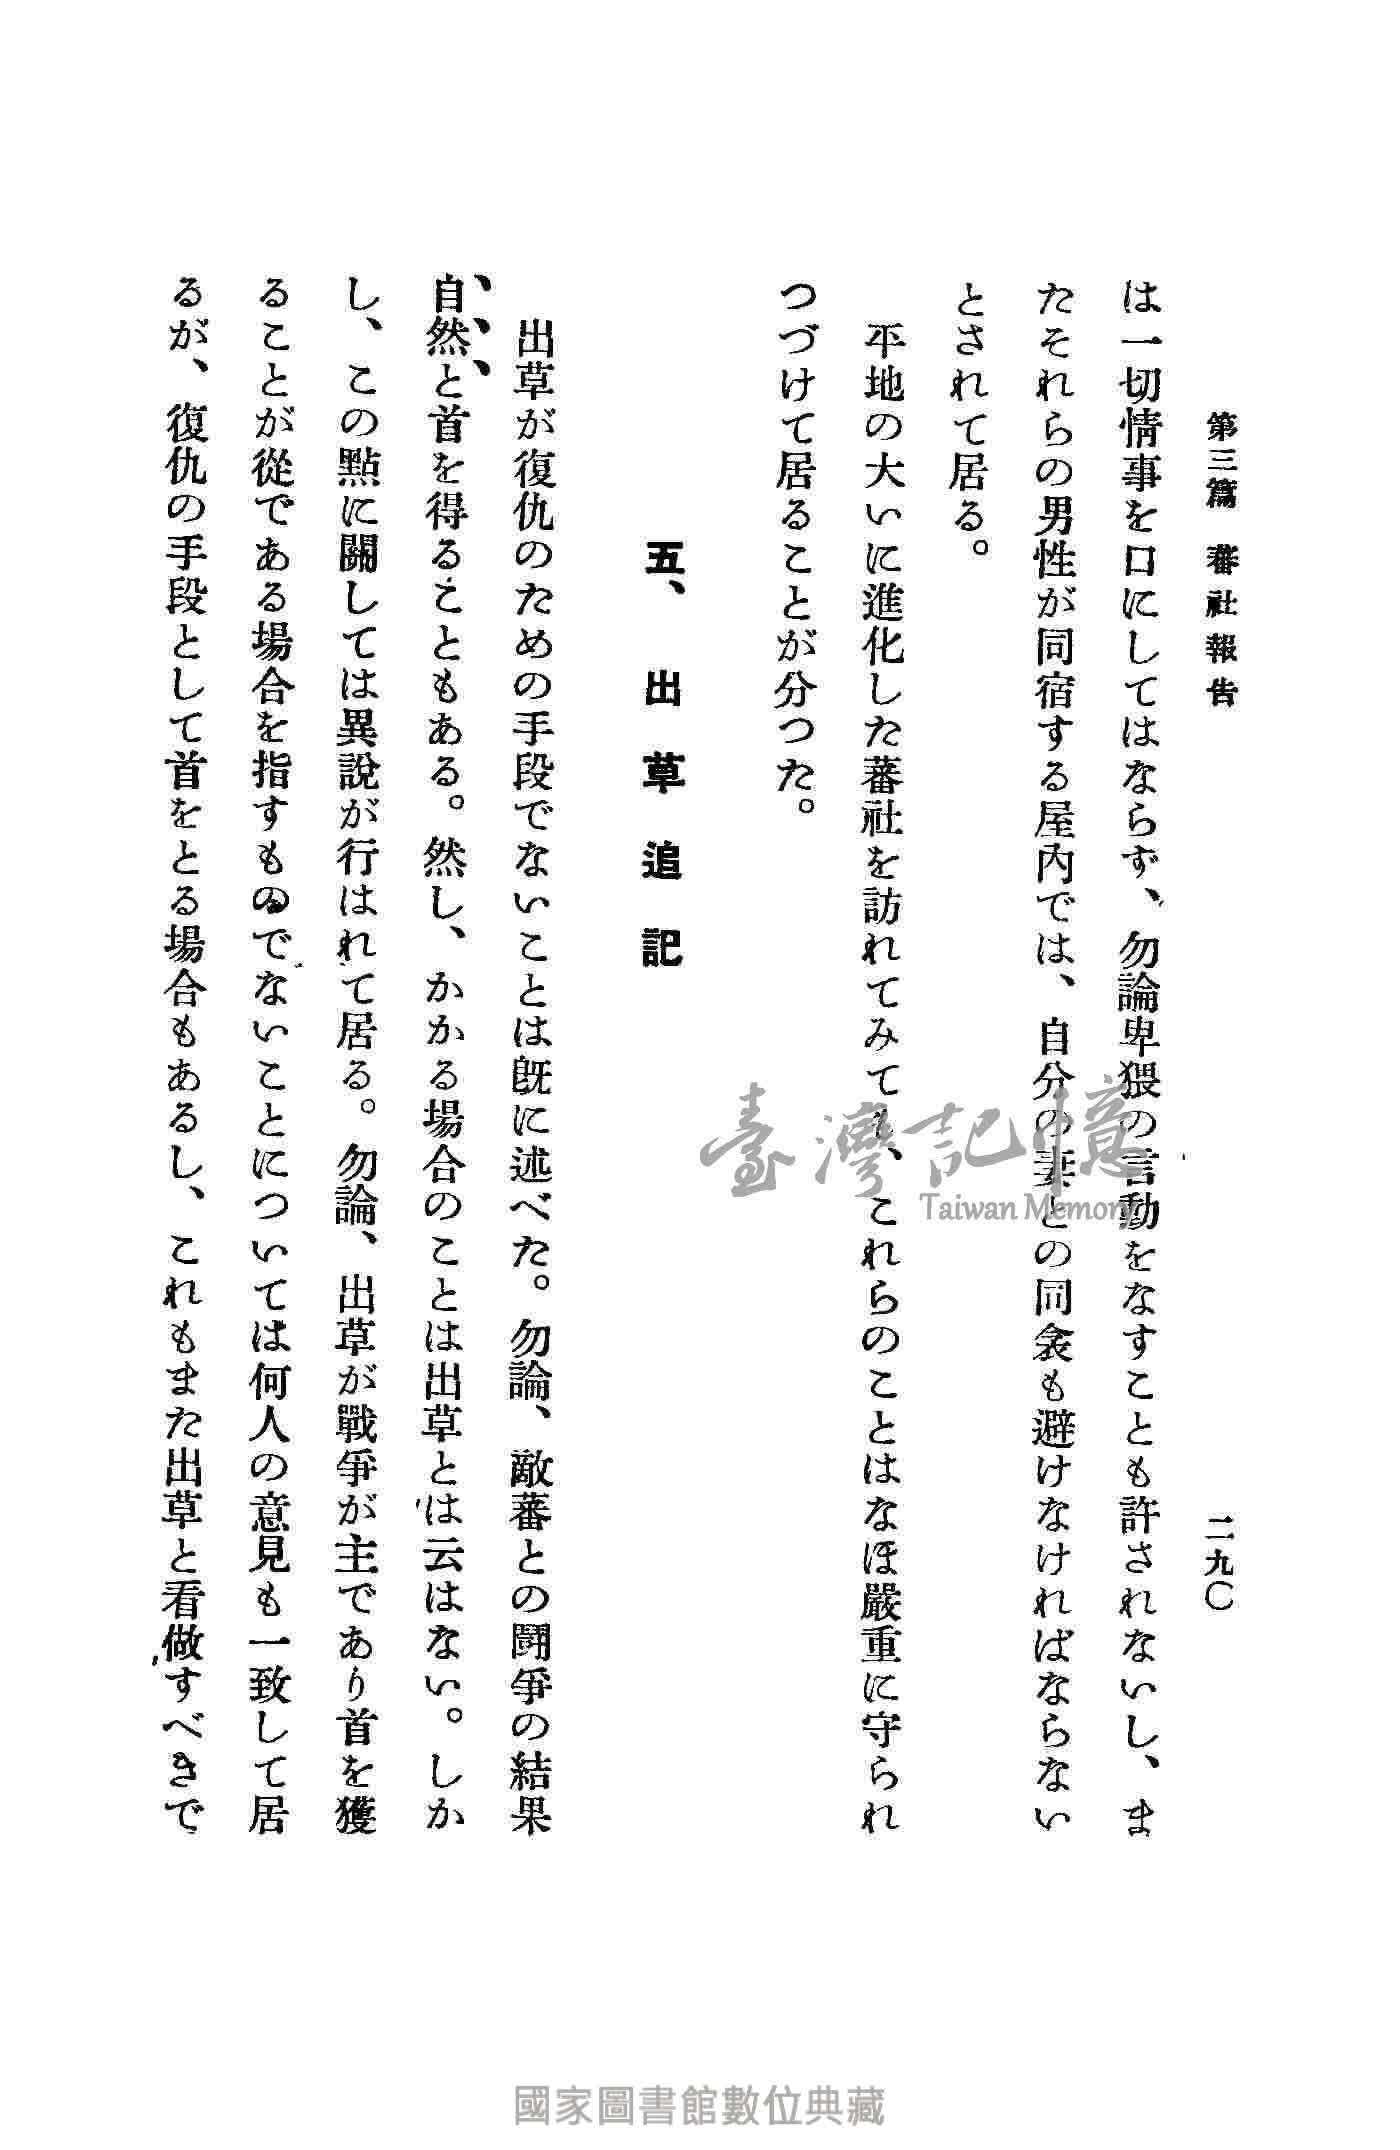 第三篇 蕃社報告 二九〇
は一切情事を口にしてはならず、勿論卑猥の言動をなすことも許されないし、ま
たそれらの男性が同宿する屋內では、自分の妻との同衾も避けなければならない
とされて居る。
平地の大いに進化した蕃社を訪れてみても、これらのことはなほ嚴重に守られ
つづけて居ることが分つた。
五、出草追記
出草が復仇のための手段でないことは既に述べた。勿論、敵蕃との鬪爭の結果
自然と首を得ることもある。然し、かかる場合のことは出草とは云はない。しか
し、この點に關しては異說が行はれて居る。勿論、出草が戰爭が主であり首を獲
ることが從である場合を指すものでないことについては何人の意見も一致して居
るが、復仇の手段として首をとる場合もあるし、これもまた出草と看做すべきで
臺灣記憶
Taiwan Memory
國家圖書館數位典藏